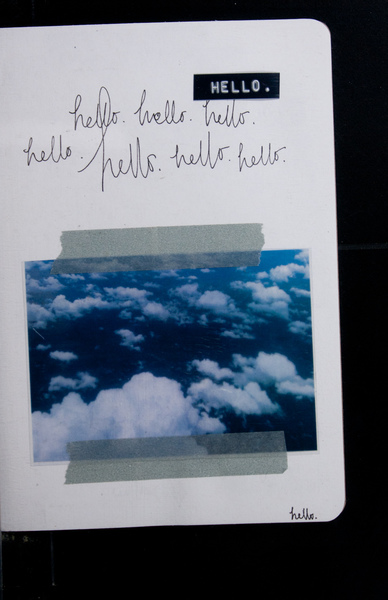 HELLO.
hello. hello. hello.
hello. hello. hello. hello.
hello.